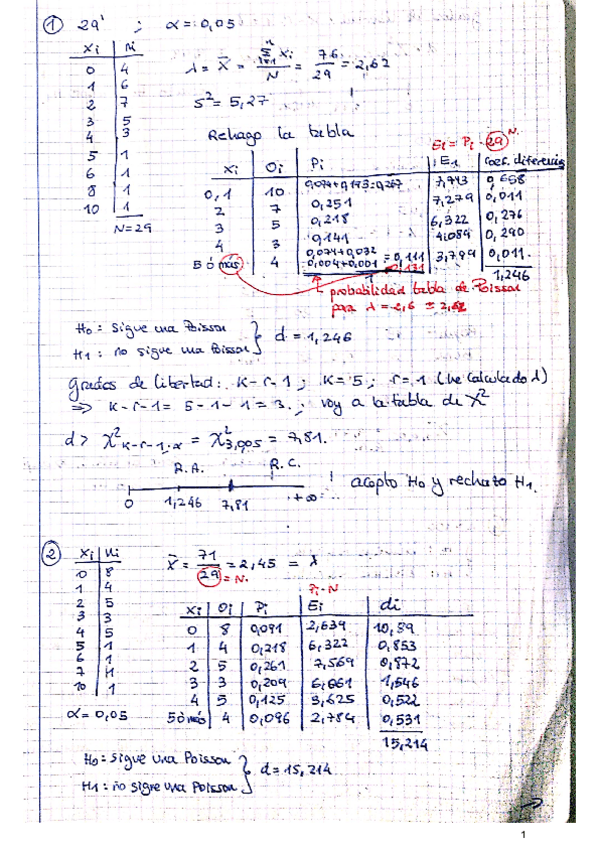 ① 29' ; α = 0,05
xi | ni
0 | 4
1 | 6
2 | 7
3 | 5
4 | 3
5 | 1
6 | 1
8 | 1
10 | 1
N=29
λ = x̄ = Σxi / N = 76 / 29 = 2,62
s² = 5,27
Rehago la tabla
Ei = Pi · 29 N.
xi | Oi | Pi | Ei | Coef. diferencia
0,1 | 10 | 0,074+0,193=0,267 | 7,743 | 0,658
2 | 7 | 0,251 | 7,279 | 0,011
3 | 5 | 0,218 | 6,322 | 0,276
4 | 3 | 0,141 | 4,089 | 0,290
5 ó más | 4 | 0,074+0,032 0,004+0,001 = 0,111 0,131 | 3,799 | 0,011
1 | 1,246
probabilidad tabla de Poisson
para λ = 2,6 ≅ 2,62
H₀ = Sigue una Poisson
H₁ : no sigue una Poisson } d = 1,246
Grados de libertad: K-r-1 ; K=5 ; r=1 (he calculado λ)
⇒ K-r-1 = 5-1-1 = 3. ; voy a la tabla de X²
d > X²K-r-1,α = X²3,0,05 = 7,81.
R.A. R.C.
0 1,246 7,81 +∞
acepto H₀ y rechazo H₁.
② xi | ni
0 | 8
1 | 4
2 | 5
3 | 3
4 | 5
5 | 1
6 | 1
7 | 1
10 | 1
α = 0,05
x̄ = 71 / 29 = 2,45 = λ
= N.
Pi · N
xi | Oi | Pi | Ei | di
0 | 8 | 0,091 | 2,639 | 10,89
1 | 4 | 0,218 | 6,322 | 0,853
2 | 5 | 0,261 | 7,569 | 0,872
3 | 3 | 0,209 | 6,061 | 1,546
4 | 5 | 0,125 | 3,625 | 0,522
5 ó más | 4 | 0,096 | 2,784 | 0,531
15,214
H₀ : sigue una Poisson
H₁ : no sigue una Poisson } d = 15,214
1